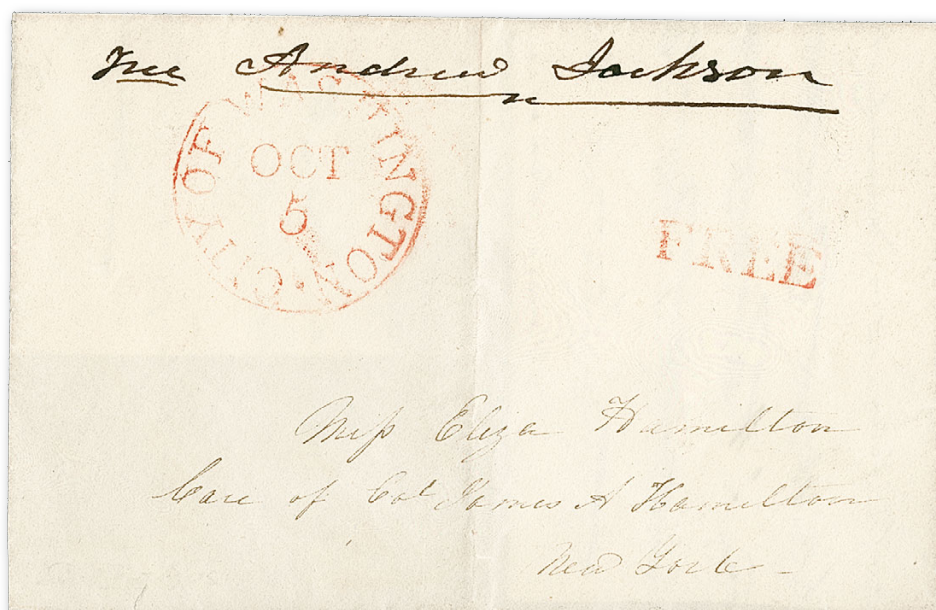 Free Andrew Jackson
CITY OF WASHINGTON
OCT
5
FREE
Miſs Eliza Hamilton
Care of Col James A Hamilton
New York